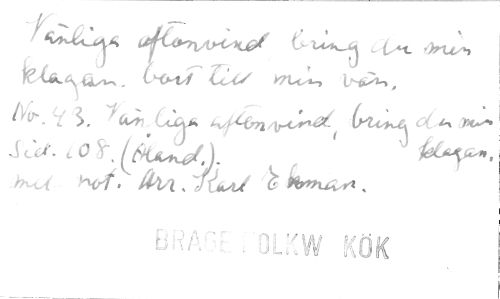 Vänliga aftonvind bring du min
klagan. bort till min vän.
No. 43. Vänliga aftonvind, bring du min
klagan.
Sid. 108. (Åland.).
med not. Arr. Karl Ekman.
BRAGE FOLKW KÖK